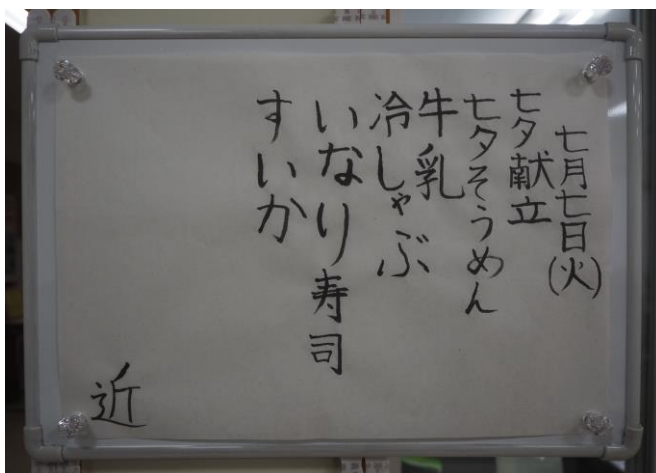 七月七日(火)
七夕献立
七夕そうめん
牛乳
冷しゃぶ
いなり寿司
すいか
近